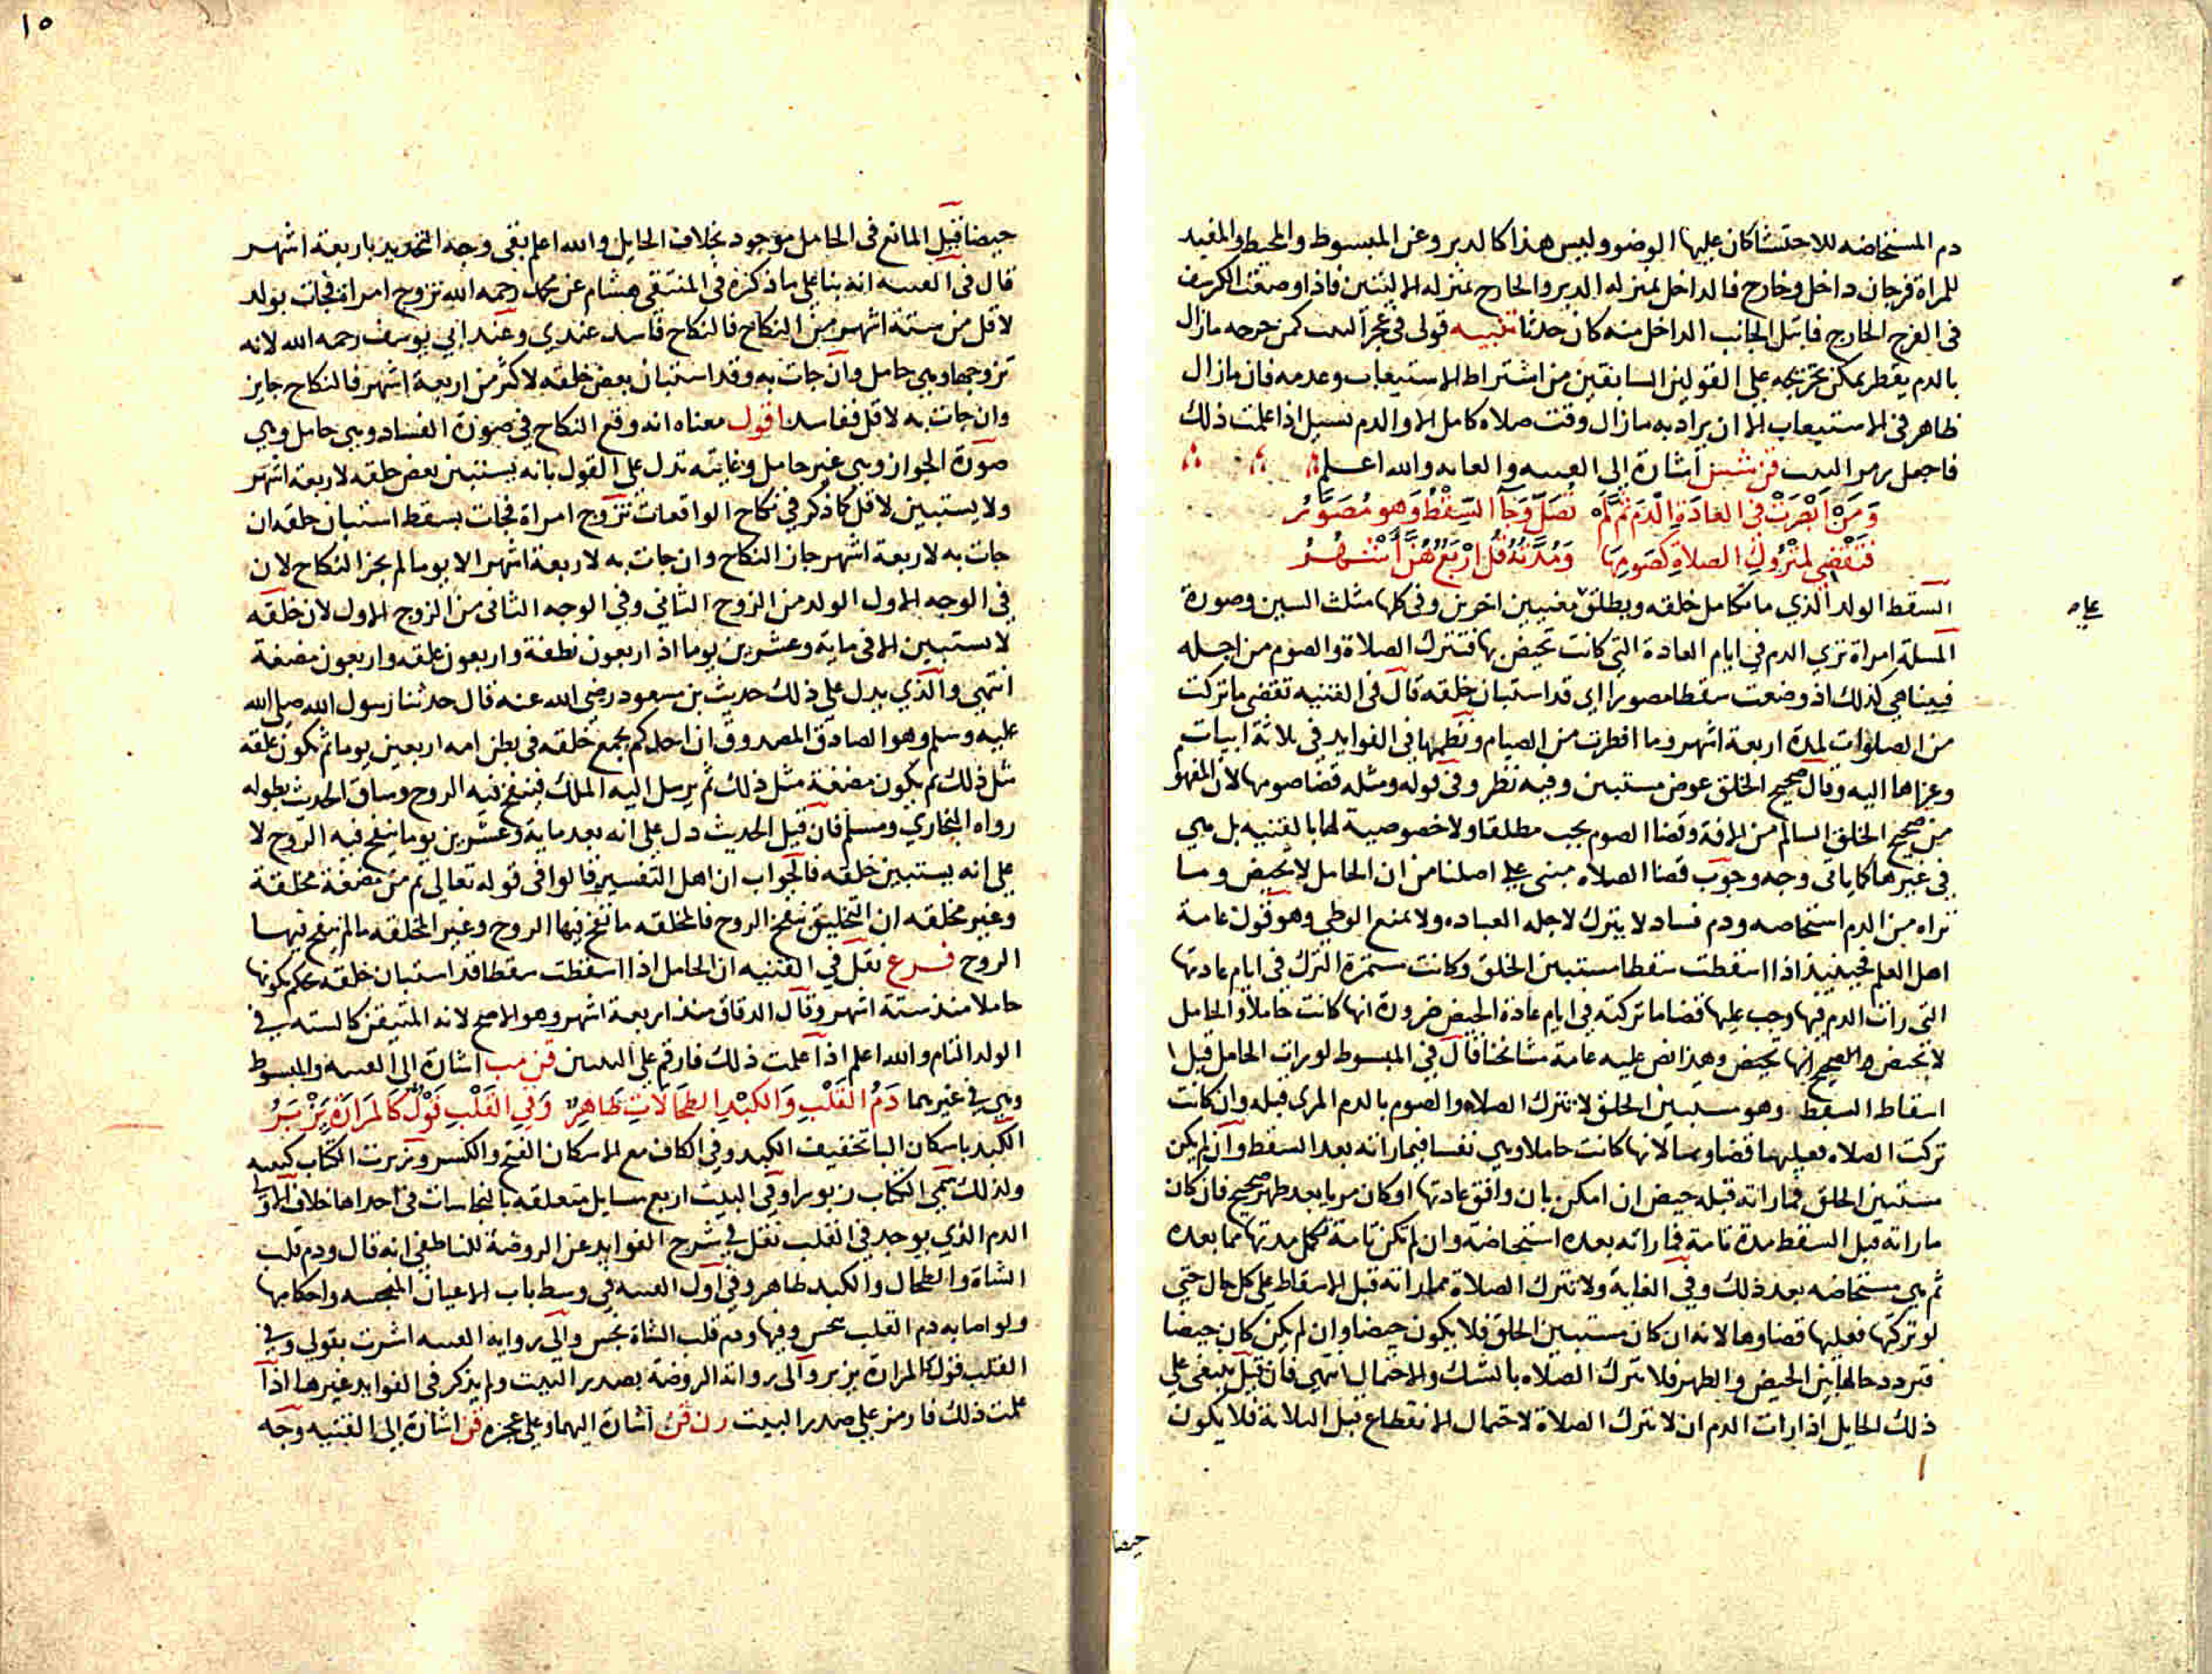 دم المستحاضه للاحتشا كان عليها الوضو وليس هذا كالدبر وعن المبسوط والمحيط والمفيد
للمراة فرجان داخل وخارج فالداخل بمنزله الدبر والخارج بمنزله الاليتين فاذا وضعت الكرسف
فى الفرج الخارج فابتل الجانب الداخل منه كان حدثا تنبيه قولى فى عجز البيت كمن جرحه مازال
بالدم يقطر يمكن تخريجه على القولين السابقين من اشتراط الاستيعاب وعدمه فان مازال
ظاهر فى الاستيعاب الا ان يراد به مازال وقت صلاه كامل الا والدم يسيل اذا علمت ذلك
فاجعل رمز البيت قن شين اشارة الى القنيه والغايه والله اعلم
وَمَنْ اَبْصَرَتْ فِي العَادَةِ الدَّمَ ثُمَّ لَمْ تُصَلِّ وَجَا السِّقْطُ وَهو مُصَوَّرُ
فَتَقْضِي لِمَتْرُوكِ الصلاةِ كَصَومِهَا وَمُدَّتُهُ قُل اَرْبَعٌ هُنَّ اَشْهُرُ
السقط الولد الذي ما تكامل خلقه ويطلق بمعنيين اخرين وفى كلها مثلث السين وصورة
المسلة امراة ترى الدم فى ايام العادة التى كانت تحيض بها فتترك الصلاة والصوم من اجله
فبينا هى كذلك اذ وضعت سقطا مصورا اى قد استبان خلقه قال فى القنيه تقضى ما تركت
من الصلوات لمدة اربعة اشهر وما افطرت من الصيام ونظمها فى الفوايد فى ثلاثة ابيات
وعزاها اليه وقال صحيح الخلق عوض مستبين وفيه نظر وفى قوله ومثله قضا صومها لان المفهوم
من صحيح الخلق السالم من الافة وقضا الصوم يجب مطلقا ولا خصوصية لها بالقنيه بل هى
فى غيرها كما ياتى وجه وجوب قضا الصلاه مبنى على اصلنا من ان الحامل لا تحيض وما
تراه من الدم استحاضه ودم فساد لا يترك لاجله العباده ولا يمنع الوطي وهو قول عامة
اهل العلم فحينيذ اذا اسقطت سقطا مستبين الخلق وكانت مستمرة الترك فى ايام عادتها
التى رات الدم فيها وجب عليها قضا ما تركته فى ايام عادة الحيض ضرورة انها كانت حاملا والحامل
لا تحيض والصحيح انها تحيض وهذا نص عليه عامة مشائخنا قال فى المبسوط لو رات الحامل قبل
اسقاط السقط وهو مستبين الخلق لا تترك الصلاه والصوم بالدم المرى قبله وان كانت
تركت الصلاه فعليها قضاوها لانها كانت حاملا وهى نفسا فيما راته بعد السقط وان لم يكن
مستبين الخلق فما راته قبله حيض ان امكن بان وافق عادتها او كان مريا بعد طهر صحيح فان كان
ما راته قبل السقط مدة تامة فما راته بعده استحاضة وان لم تكن تامة تكمل مدتها مما بعده
ثم هى مستحاضه بعد ذلك وفى الغاية ولا تترك الصلاة مما راته قبل الاسقاط على كل حال حتى
لو تركتها فعليها قضاوها لانه ان كان مستبين الخلق فلا يكون حيضا وان لم يكن كان حيضا
فتردد حالها بين الحيض والطهر فلا تترك الصلاه بالشك والاحتمال انتهى فان قيل ينبغى على
ذلك الحايل اذا رات الدم ان لا تترك الصلاة لاحتمال الانقطاع قبل الثلاثة فلا يكون
حيضا
١٥
حيضا قيل المانع فى الحامل موجود بخلاف الحايل والله اعلم بقى وجه التحديد باربعة اشهر
قال فى القنيه انه بنا على ما ذكره فى المنتقى هشام عن محمد رحمه الله تزوج امراة فجات بولد
لاقل من ستة اشهر من النكاح فالنكاح فاسد عندي وعند ابي يوسف رحمه الله لانه
تزوجها وهى حامل وان جات به وقد استبان بعض خلقه لاكثر من اربعة اشهر فالنكاح جايز
وان جات به لاقل ففاسد اقول معناه انه وقع النكاح فى صورة الفساد وهى حامل وفي
صورة الجواز وهى غير حامل وغايته تدل على القول بانه يستبين بعض خلقه لاربعة اشهر
ولا يستبين لاقل كما ذكر فى نكاح الواقعات تزوج امراة فجات بسقط استبان خلقه ان
جات به لاربعة اشهر جاز النكاح وان جات به لاربعة اشهر الا يوما لم يجز النكاح لان
فى الوجه الاول الولد من الزوج الثاني وفى الوجه الثانى من الزوج الاول لان خلقه
لا يستبين الا فى ماية وعشرين يوما اذ اربعون نطفة واربعون علقه واربعون مضغة
انتهى والذي يدل على ذلك حديث بن مسعود رضى الله عنه قال حدثنا رسول الله صلى الله
عليه وسلم وهو الصادق المصدوق ان احدكم يجمع خلقه فى بطن امه اربعين يوما ثم يكون علقة
مثل ذلك ثم يكون مضغة مثل ذلك ثم يرسل اليه الملك فينفخ فيه الروح وساق الحديث بطوله
رواه البخاري ومسلم فان قيل الحديث دل على انه بعد ماية وعشرين يوما ينفخ فيه الروح لا
على انه يستبين خلقه فالجواب ان اهل التفسير قالوا فى قوله تعالى ثم من مضغة مخلقة
وغير مخلقه ان التخليق بنفخ الروح فالمخلقه ما نفخ فيها الروح وغير المخلقه ما لم ينفخ فيها
الروح فرع نقل فى القنيه ان الحامل اذا اسقطت سقطا قد استبان خلقه يحكم بكونها
حاملا منذ ستة اشهر وقال الدقاق منذ اربعة اشهر وهو الاصح لانه المتيقن كالسته فى
الولد التام والله اعلم اذا علمت ذلك فارقم على البيتين قن مب اشارة الى القنيه والمبسوط
وهى فى غيرهما دَمُ القَلْبِ وَالكبْدِ الطحَالاتِ طَاهِرٌ وَفِي القَلْبِ قَوْلٌ كَالمَرَارَةِ يُزْبَرُ
الكبد باسكان البا تخفيف الكبد وفى الكاف مع الاسكان الفتح والكسر وزبرت الكتاب كتبته
ولذلك سمى الكتاب زبورا وفى البيت اربع مسايل متعلقه بالنجاسات فى احداها خلاف الاولى
الدم الذي يوجد فى القلب نقل فى شرح الفوايد عن الروضة للناطفي انه قال ودم قلب
الشاة والطحال والكبد طاهر وفى اول القنيه فى وسط باب الاعيان النجسه واحكامها
ولو اصابه دم القلب نجس وفيها ودم قلب الشاة نجس والى رواية القنيه اشرت بقولى وفى
القلب قول كالمرارة يزبر والى رواية الروضة بصدر البيت ولم يذكر فى الفوايد غيرها اذا
علمت ذلك فارمز على صدر البيت رن قن اشارة اليهما وعلى عجزه قن اشارة الى القنيه وجه